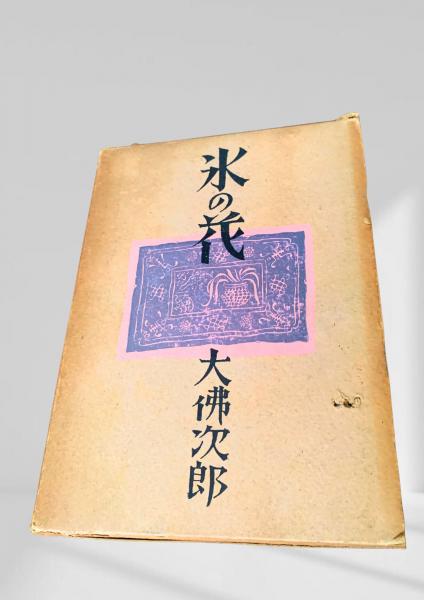 氷の花
大佛次郎